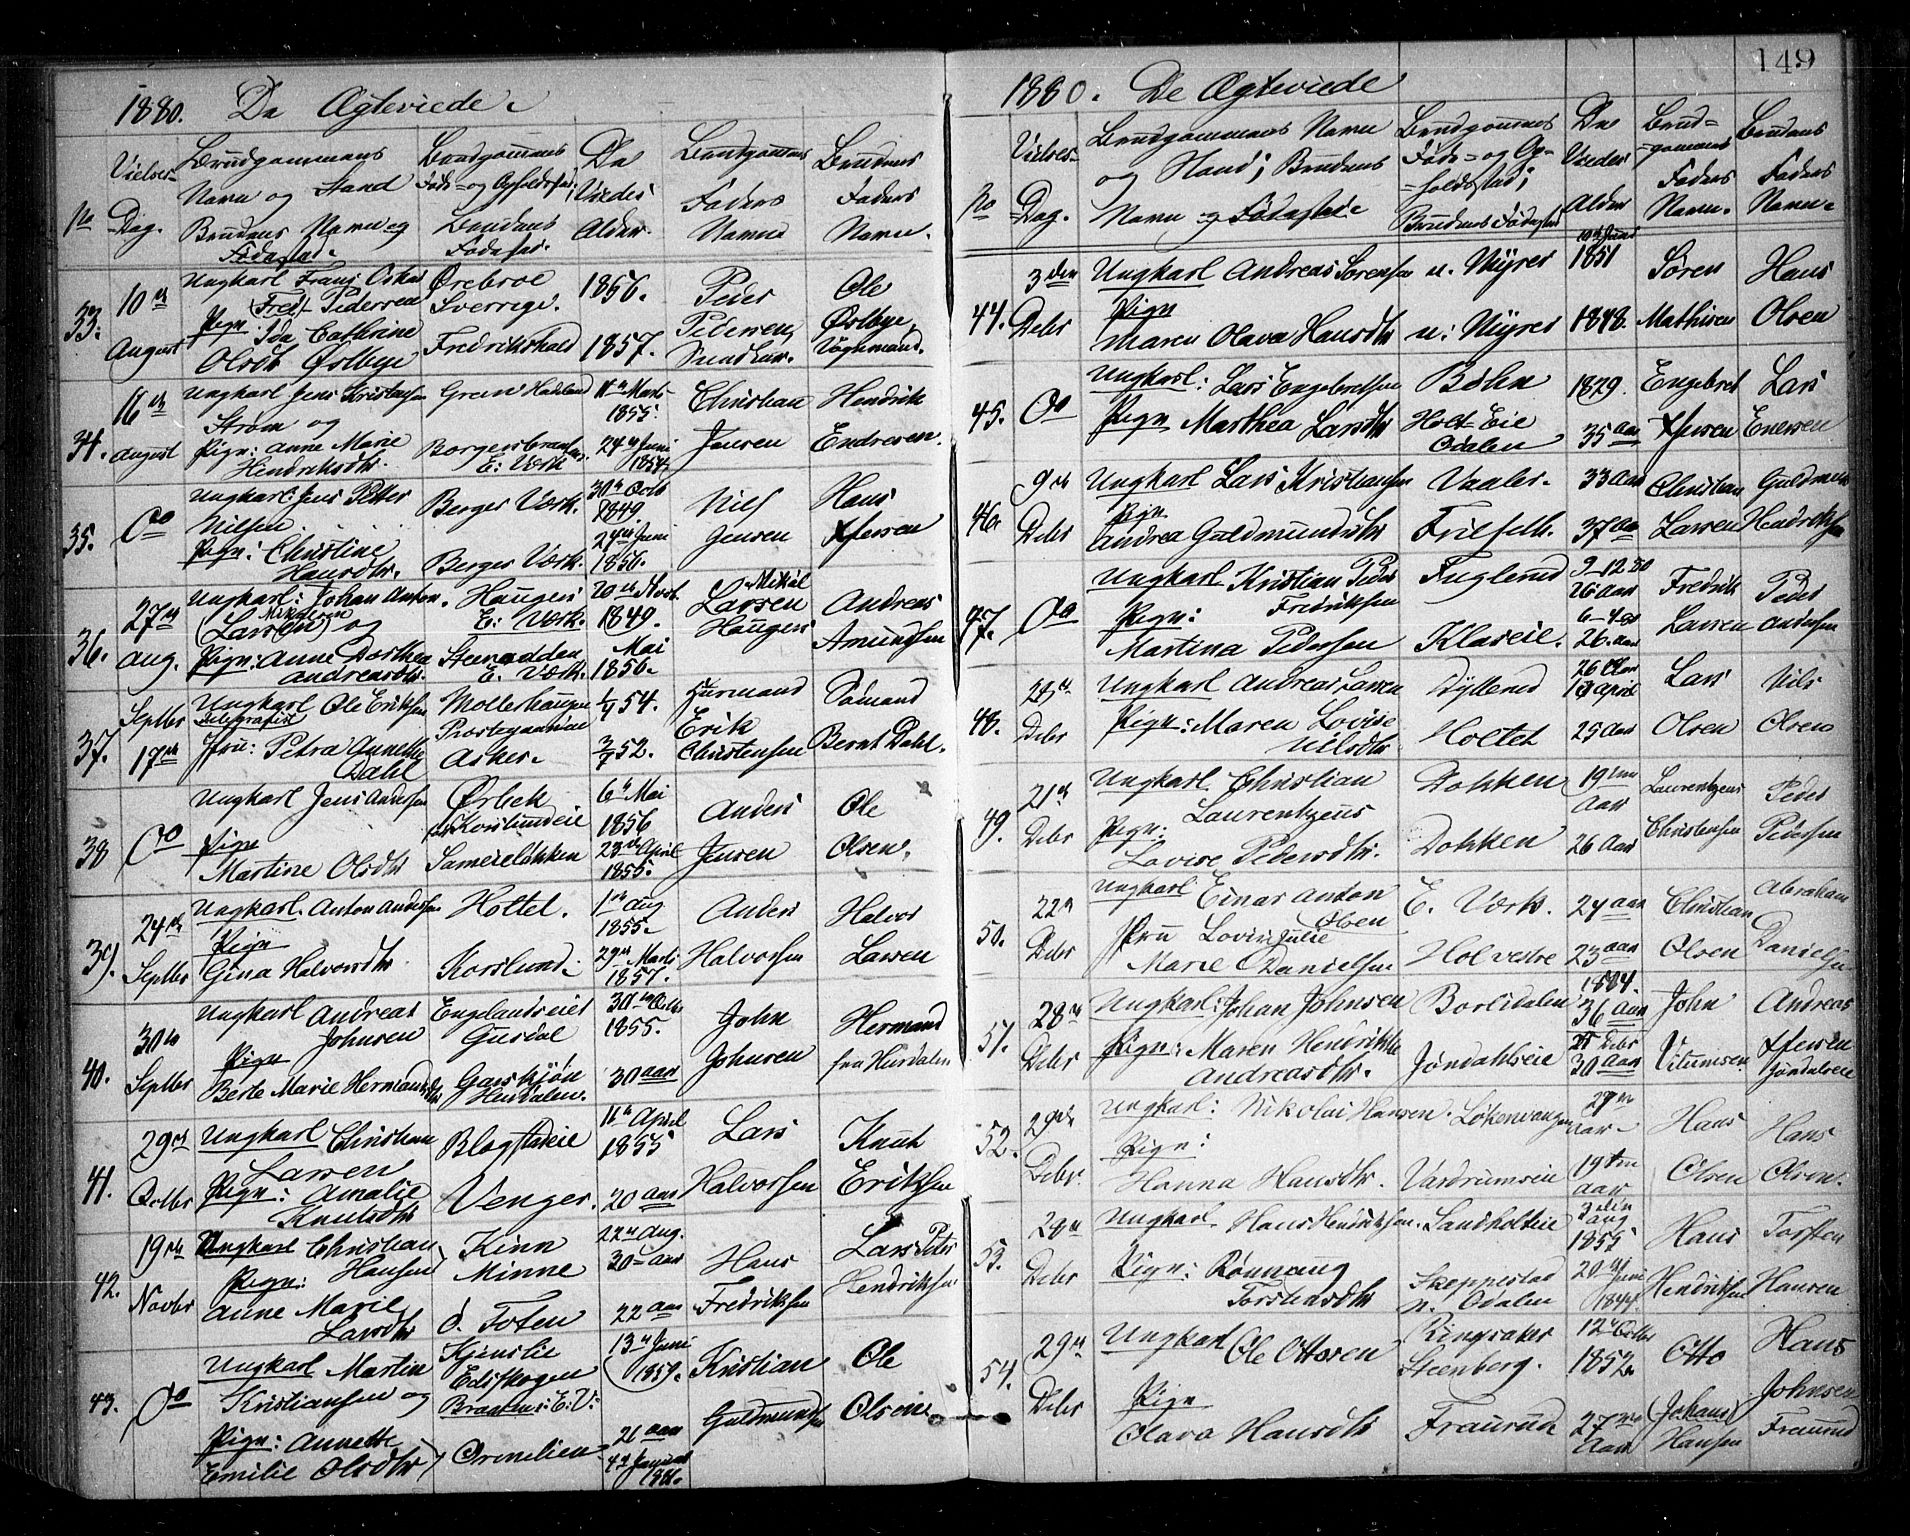 149
1880. De Ægteviede.
No
Vielses-Dag.
Brudgommens Navn og Stand Brudens Navn og Fødested.
Brudgommens Føde- og Opholdssted, Brudens Fødested.
De Viedes Alder.
Brudgommens Faders Navn
Brudens Faders Navn.
33. 10de August
Ungkarl Franz Oskar
(Fred) Pedersen
Pign Ida Cathrine
Olsdtr Østbye
Ørebroe
Sverrige.
Fredrikshald
1856.
1857.
Peder
Pedersen,
Ole
Østbye,
34. 16de August
Ungkarl Jens Kristensen
Strøm og
Pign: Anne Marie
Hendriksdtr.
Gran Hadeland
E: Værk
11te Marts
1855
24de Juni
1854
Christian
Jensen
Hendrik
Endresen.
35. Do
Ungkarl: Jens Petter
Nilsen.
Pign: Christine
Hansdtr.
Berger Værk.
Berger Værk.
30te Octb
1849
1856.
Nils
Jensen
Hans
36. 27de Aug.
Ungkarl: Johan Anton
(Larsen) Mikkelsen og
Pign: Anne Dorthea
Andreasdtr.
Haugen
E: Værk.
Steenodden
E. Værk
20de Novb.
1849.
Mai
1856.
Mikal
Larsen
Haugen
Andreas
Amundsen
37. Septbr 17de
Ungkarl Ole Eriksen
Telegrafist
Jfru: Petra Annette
Dahl
Mollerhaugen
Asker.
54.
52.
Erik
Christensen
Sømand
Bernt Dahl.
38 Do
Ungkarl Jens Andersen
Pign
Martine Olsdtr
Ørbek
Korslundeie
Sameieløkken
6te Mai
1856
23de April
1855.
Anders
Jensen
Ole
Olsen.
39. 24de Septbr
Ungkarl. Anton Andersen
Pign
Gina Halvorsdtr
Holtet.
Korslund.
1te Aug
1855.
29de Marts
1857.
Anders
Halvorsen
Halvor
Larsen
40. 30te Septbr
Ungkarl Andreas
Johnsen
Pign
Berte Marie Hermansdtr
Englandseiet
Garsjøn
Hurdalen.
30te Octbr
1855.
30 aar
John
Johnsen
Hermand
fra Hurdalen
41. 29de Octbr
Ungkarl Christian
Larsen
Pign: Amalie
Knutsdtr
Blegstadeie
Venger.
11te April
1855
20 aar
Lars
Halvorsen
Knut
Eriksen
42. 19de Novbr
Ungkarl Christian
Hansen
Pign:
Anne Marie
Larsdtr
Kinn
Minne
Ø. Toten
22de Aug.
30 aar
22 aar
Hans
Fredriksen
Lars Peter
Hendriksen
43. Do
Ungkarl Martin
Kristiansen og
Pign: Annette
Emilie Olsdtr
Edskogen
E: V:
Ornelien
13de Juni
1857.
21 aar
4de Januar
Kristian
Guldmundsen
Ole
Olsen
1880. De Ægteviede
No
Vielses-Dag.
Brudgommens Navn og Stand; Brudens Navn og Fødested.
Brudgommens Føde- og Opholdssted; Brudens Fødested
De Viedes Alder
Brudgommens Faders Navn.
Brudens Faders Navn.
44. 3die Debr
Ungkarl Andreas Sørensen
Pign
Maren Olava Hansdtr
n. Myrer
n: Myrer
10de Juni
1851
1848.
Søren
Mathisen
Hans
Olsen
45. Do
Ungkarl: Lars Engebretsen
Pign Marthea Larsdtr
Bøhn
Holt Eie
Odalen
1829.
35 aar
Engebret
Lars
Enersen
46. 9de Debr
Ungkarl Lars Kristiansen
Pign
Andrea Guldmundsdtr
Vaaler.
Frilseth.
33 aar
37 aar
Christian
Larsen
Guldmund
Hendriksen
47. Do
Ungkarl Kristian Peder
Fredriksen
Pign:
Martina Pedersen
Fuglerud
Klaseie.
9-12 80
26 aar
6-4
26. aar
Fredrik
Larsen
Peder
Andersen
48. 28de Debr
Ungkarl Andreas Larsen
Pign: Maren Lovise
Nilsdtr
Dyllerud
Holtet
26 aar
13 April
25 aar
Lars
Olsen
Nils
Olsen
49. 21de Debr
Ungkarl Christian
Laurentzeus
Pign:
Lovise Pedersdtr.
Dokken
Dokken
19 aar
26 aar
Laurentzeus
Christensen
Peder
Pedersen
50. 22de Debr
Ungkarl Einar Anton
Olsen
Jfru Lovise Julie
Marie Danielsen
E. Værk.
Hol vestre
24 aar
23 aar
Christian
Olsen
Abraham
Danielsen
51. 28de Debr
Ungkarl: Johan Johnsen
Pign: Maren Hendrikke
Andreasdtr.
Borlidalen
Jøndahlseie
36 aar
30 aar
John
Andreas
Jøndalseie
52. 29de Debr.
Ungkarl: Nikolai Hansen.
Pign:
Hanna Hansdtr.
Løkenvangen
29 aar
19 aar
Hans
Olsen
Hans
Olsen.
53. 28de Debr
Ungkarl Hans Hendriksen.
Pign: Rønnaug
Torstensdtr
Sandholteie
Skeppestad
n. Odalen
3die Aug
1855
20de Juni
1844.
Hans
Hendriksen
Torsten
Hansen
54. 29de Debr
Ungkarl Ole Ottosen
Pign
Olava Hansdtr
Ringsaker
Steenberg.
Fraurud
12te Octbr
1852.
27 aar
Otto
(Johans)
Hansen
Hans
Johnsen
Fraurud